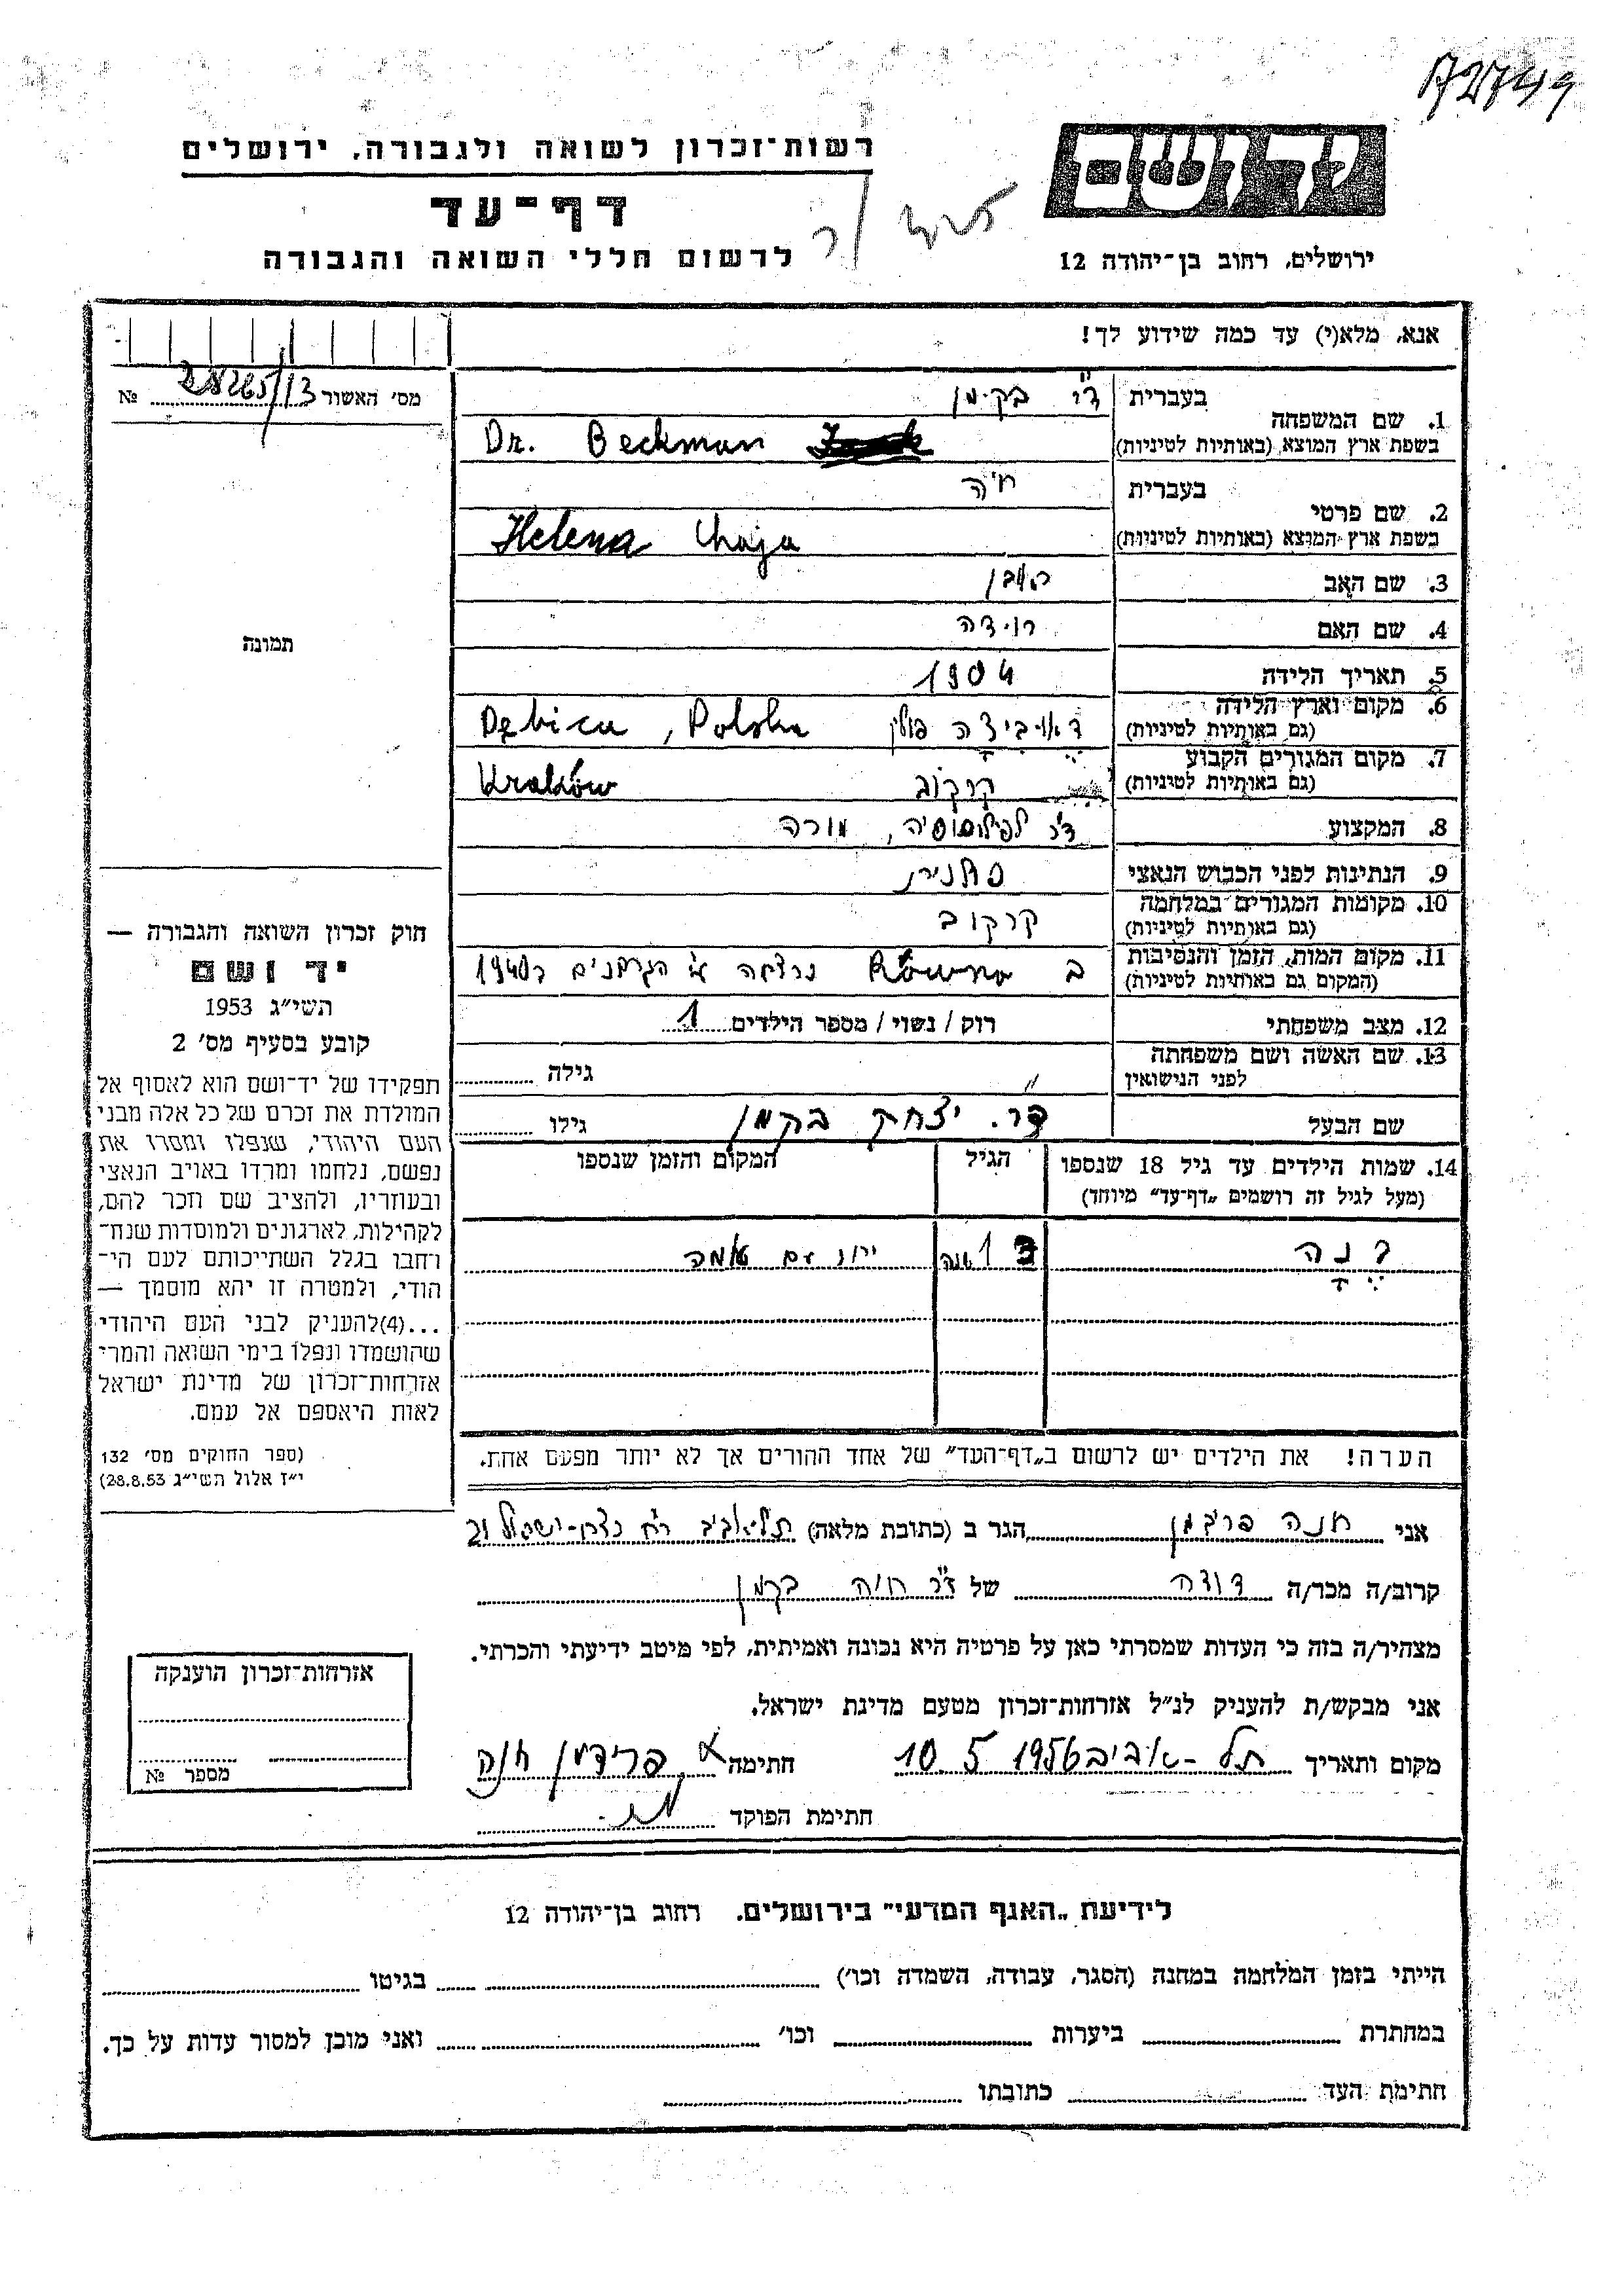 A2749
רשות־זכרון לשואה ולגבורה, ירושלים
יד ושם
דף־עד
לרשום חללי השואה והגבורה
ירושלים, רחוב בן־יהודה 12
אנא, מלא(י) עד כמה שידוע לך!
מס׳ האשור 28265/13 №
1. שם המשפחה בעברית ד״ר בקמן
בשפת ארץ המוצא (באותיות לטיניות) Dr. Beckman
2. שם פרטי בעברית חיה
בשפת ארץ המוצא (באותיות לטיניות) Helena Chaja
3. שם האב ראובן
4. שם האם
5. תאריך הלידה 1904
6. מקום וארץ הלידה
(גם באותיות לטיניות) פולין Dębica, Polska
7. מקום המגורים הקבוע
(גם באותיות לטיניות) קרקוב Kraków
8. המקצוע ד״ר לפילוסופיה, מורה
9. הנתינות לפני הכבוש הנאצי פולנית
10. מקומות המגורים במלחמה
(גם באותיות לטיניות) קרקוב
11. מקום המות, הזמן והנסיבות
(המקום גם באותיות לטיניות) ב Równo נרצחה ע״י הגרמנים ב1940
12. מצב משפחתי רוק / נשוי / מספר הילדים 1
13. שם האשה ושם משפחתה
לפני הנישואין גילה
שם הבעל דר. יצחק בקמן גילו
14. שמות הילדים עד גיל 18 שנספו
(מעל לגיל זה רושמים „דף־עד״ מיוחד)
הגיל
המקום והזמן שנספו
דנה 1 שנה יחד עם אמה
הערה! את הילדים יש לרשום ב„דף־העד״ של אחד ההורים אך לא יותר מפעם אחת.
תמונה
חוק זכרון השואה והגבורה —
יד ושם
תשי״ג 1953
קובע בסעיף מס׳ 2
תפקידו של יד־ושם הוא לאסוף אל
המולדת את זכרם של כל אלה מבני
העם היהודי, שנפלו ומסרו את
נפשם, נלחמו ומרדו באויב הנאצי
ובעוזריו, ולהציב שם וזכר להם,
לקהילות, לארגונים ולמוסדות שנח־
רחבו בגלל השתייכותם לעם הי־
הודי, ולמטרה זו יהא מוסמך —
...(4)להעניק לבני העם היהודי
שהושמדו ונפלו בימי השואה והמרי
אזרחות־זכרון של מדינת ישראל
לאות היאספם אל עמם.
(ספר החוקים מס׳ 132
י״ז אלול תשי״ג 28.8.53)
אני חנה פרידמן הגר ב (כתובת מלאה) תל־אביב רח
קרוב/ה מכר/ה דודה של ד״ר חיה בקמן
מצהיר/ה בזה כי העדות שמסרתי כאן על פרטיה היא נכונה ואמיתית, לפי מיטב ידיעתי והכרתי.
אני מבקש/ת להעניק לנ״ל אזרחות־זכרון מטעם מדינת ישראל.
מקום ותאריך תל-אביב 10.5 1956 חתימה פרידמן חנה
חתימת הפוקד
אזרחות־זכרון הוענקה
מספר №
לידיעת „האגף המדעי״ בירושלים, רחוב בן־יהודה 12
הייתי בזמן המלחמה במחנה (הסגר, עבודה, השמדה וכו׳) בגיטו
במחתרת ביערות וכו׳ ואני מוכן למסור עדות על כך.
חתימת העד כתובתו